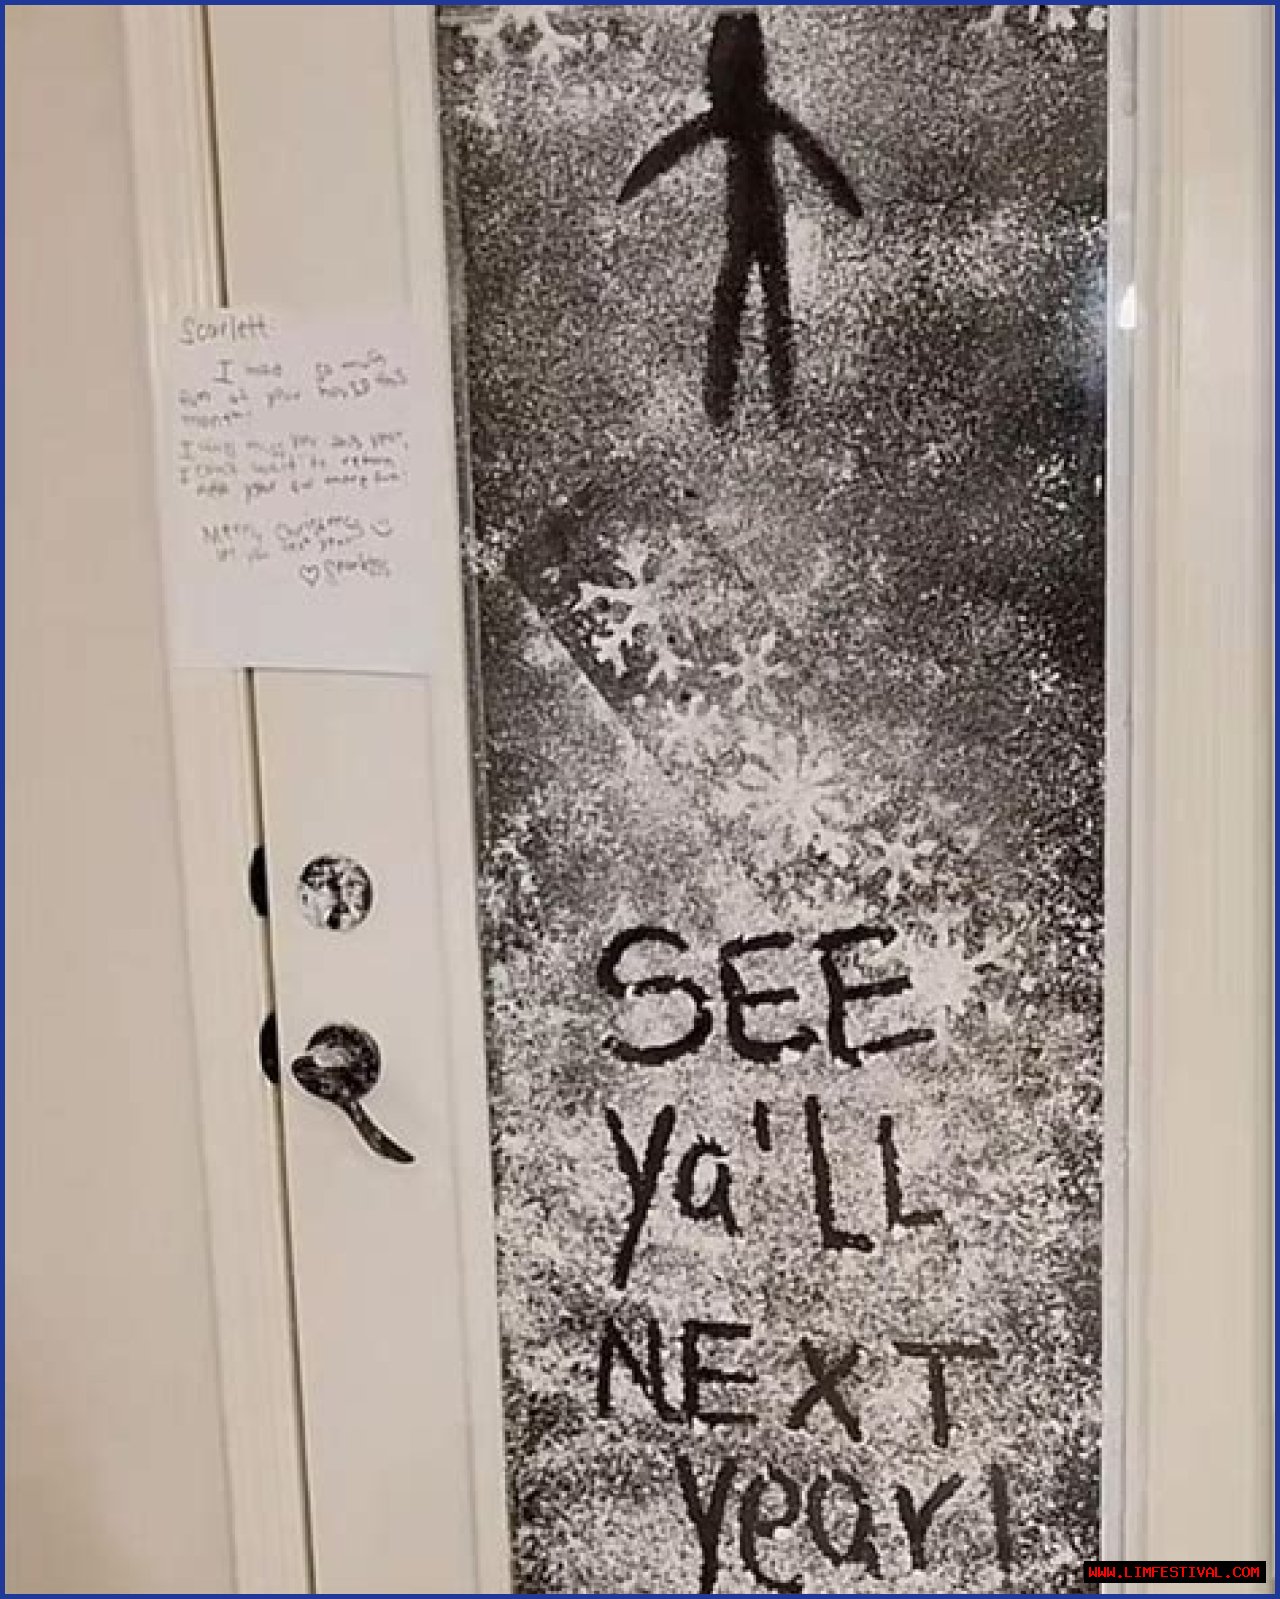 Scarlett
I had so much
fun at your house this
month!
I will miss you this year,
I can't wait to return
next year for more fun!
Merry Christmas
see you next year
Sparkles
SEE
Ya'LL
NEXT
year!
WWW.LIMFESTIVAL.COM